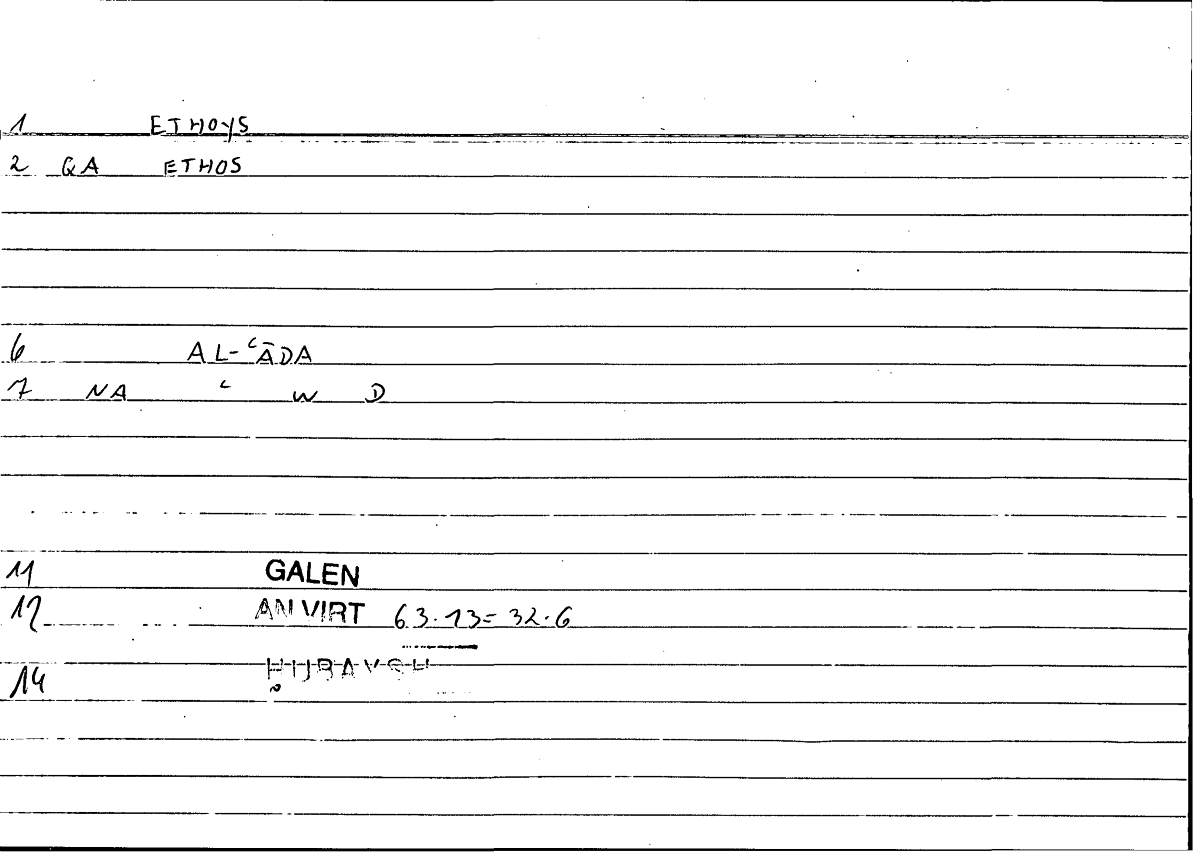 1 ETHOYS
2 QA ETHOS
6 AL-ʿĀDA
7 NA ʿ W D
11 GALEN
12 AN VIRT 63.13=32.6
14 ḤUBAYSH